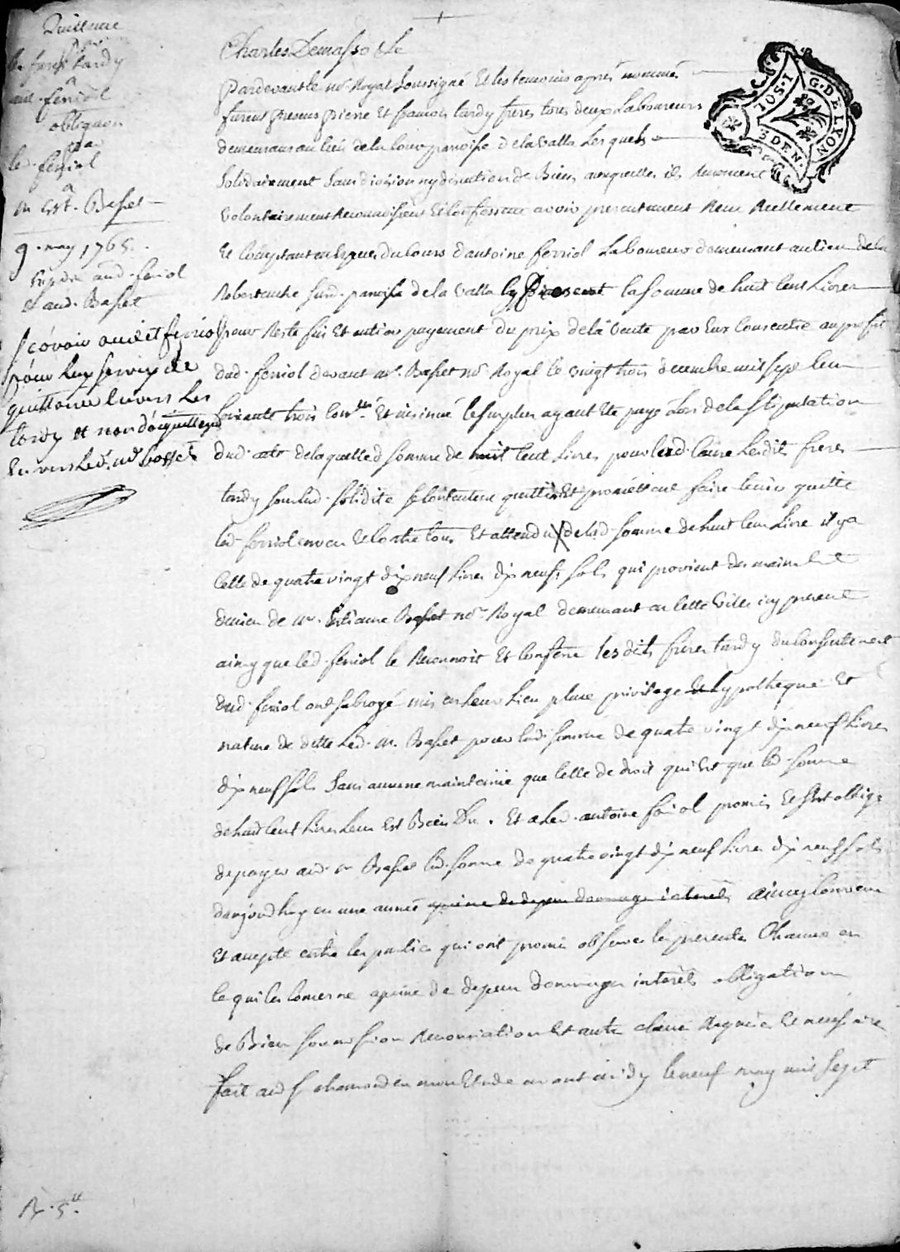 Quittance
par
les freres tardy
aud. ferriol
obligaon
par
led. ferriol
a
m Est. Basset
9. may 1765.
Exped. aud. feriol
et aud. Basset
Charles Demasso &c
Pardevant le no.re Royal soussigné Et les temoins après nommé
furent presens pierre Et francois tardy freres tous deux Laboureurs
demeurans au lieu de la parroisse de la valla Lesquels
solidairement sans division ny discution de Biens auxquelles ils renoncent
volontairement Reconnoissent Et Confessent avoir presentement Receu Reellement
Et Comptant en Especes du Cours d'antoine ferriol Laboureur demeurant au lieu de la
Robertanche susd. paroisse de la valla la somme de huit Cent Livres
pour Reste fin Et entier payement du prix de la vente par Eux Consentie au profit
dud. ferriol devant m.e Basset no.re Royal le vingt trois decembre mil sept Cent
soixante trois Et insinué le surplus ayant Eté payé Lors de la stipulation
dud. acte de laquelle d. somme de huit Cent Livres pour lesd. Cause Lesdits freres
tardy sous lad. solidité se Contentent quittent Et promettent faire tenir quitte
led. ferriol envers Et Contre tous Et attendu que de lad. somme de huit Cent Livre il y a
Celle de quatre vingt dix neuf Livres dix neufs sols qui provient des mains
denier de m.e Estienne Basset no.re Royal demeurant en Cette ville icy present
ainsy que led. ferriol le Reconnoit Et Confesse lesdits freres tardy du Consentement
dud. feriol ont subrogé mis en Leur Lieu place privilege Et hypotheque Et
nature de dette led. m. Basset pour lad. somme de quatre vingt dix neuf Livres
dix neuf sols sans aucune maintenüe que Celle de droit qui Est que lad. somme
de huit Cent Livres leur Est Bien Düe. Et a led. antoine feriol promis Et s'est obligé
de payer aud. m Basset lad. somme de quatre vingt dix neuf Livres dix neuf sols
daujourdhuy en une année a peine de depens dommages interets ainsy Convenu
Et accepté entre les parties qui ont promis observer les presentes Chacune en
Ce qui les Concerne a peine de depens dommages interets obligation
de Biens soumission Renonciation Et autre clause Requise Et necessaire
fait aud. st chamond en mon Etude avant midy le neuf may mil sept
scavoir aud. et fériol
pour luy servir de
quittance envers Les
tardy et non d'acquittem.
Envers led. m.e basset
R. 5.ll
G. DE LYON
3 DEN.